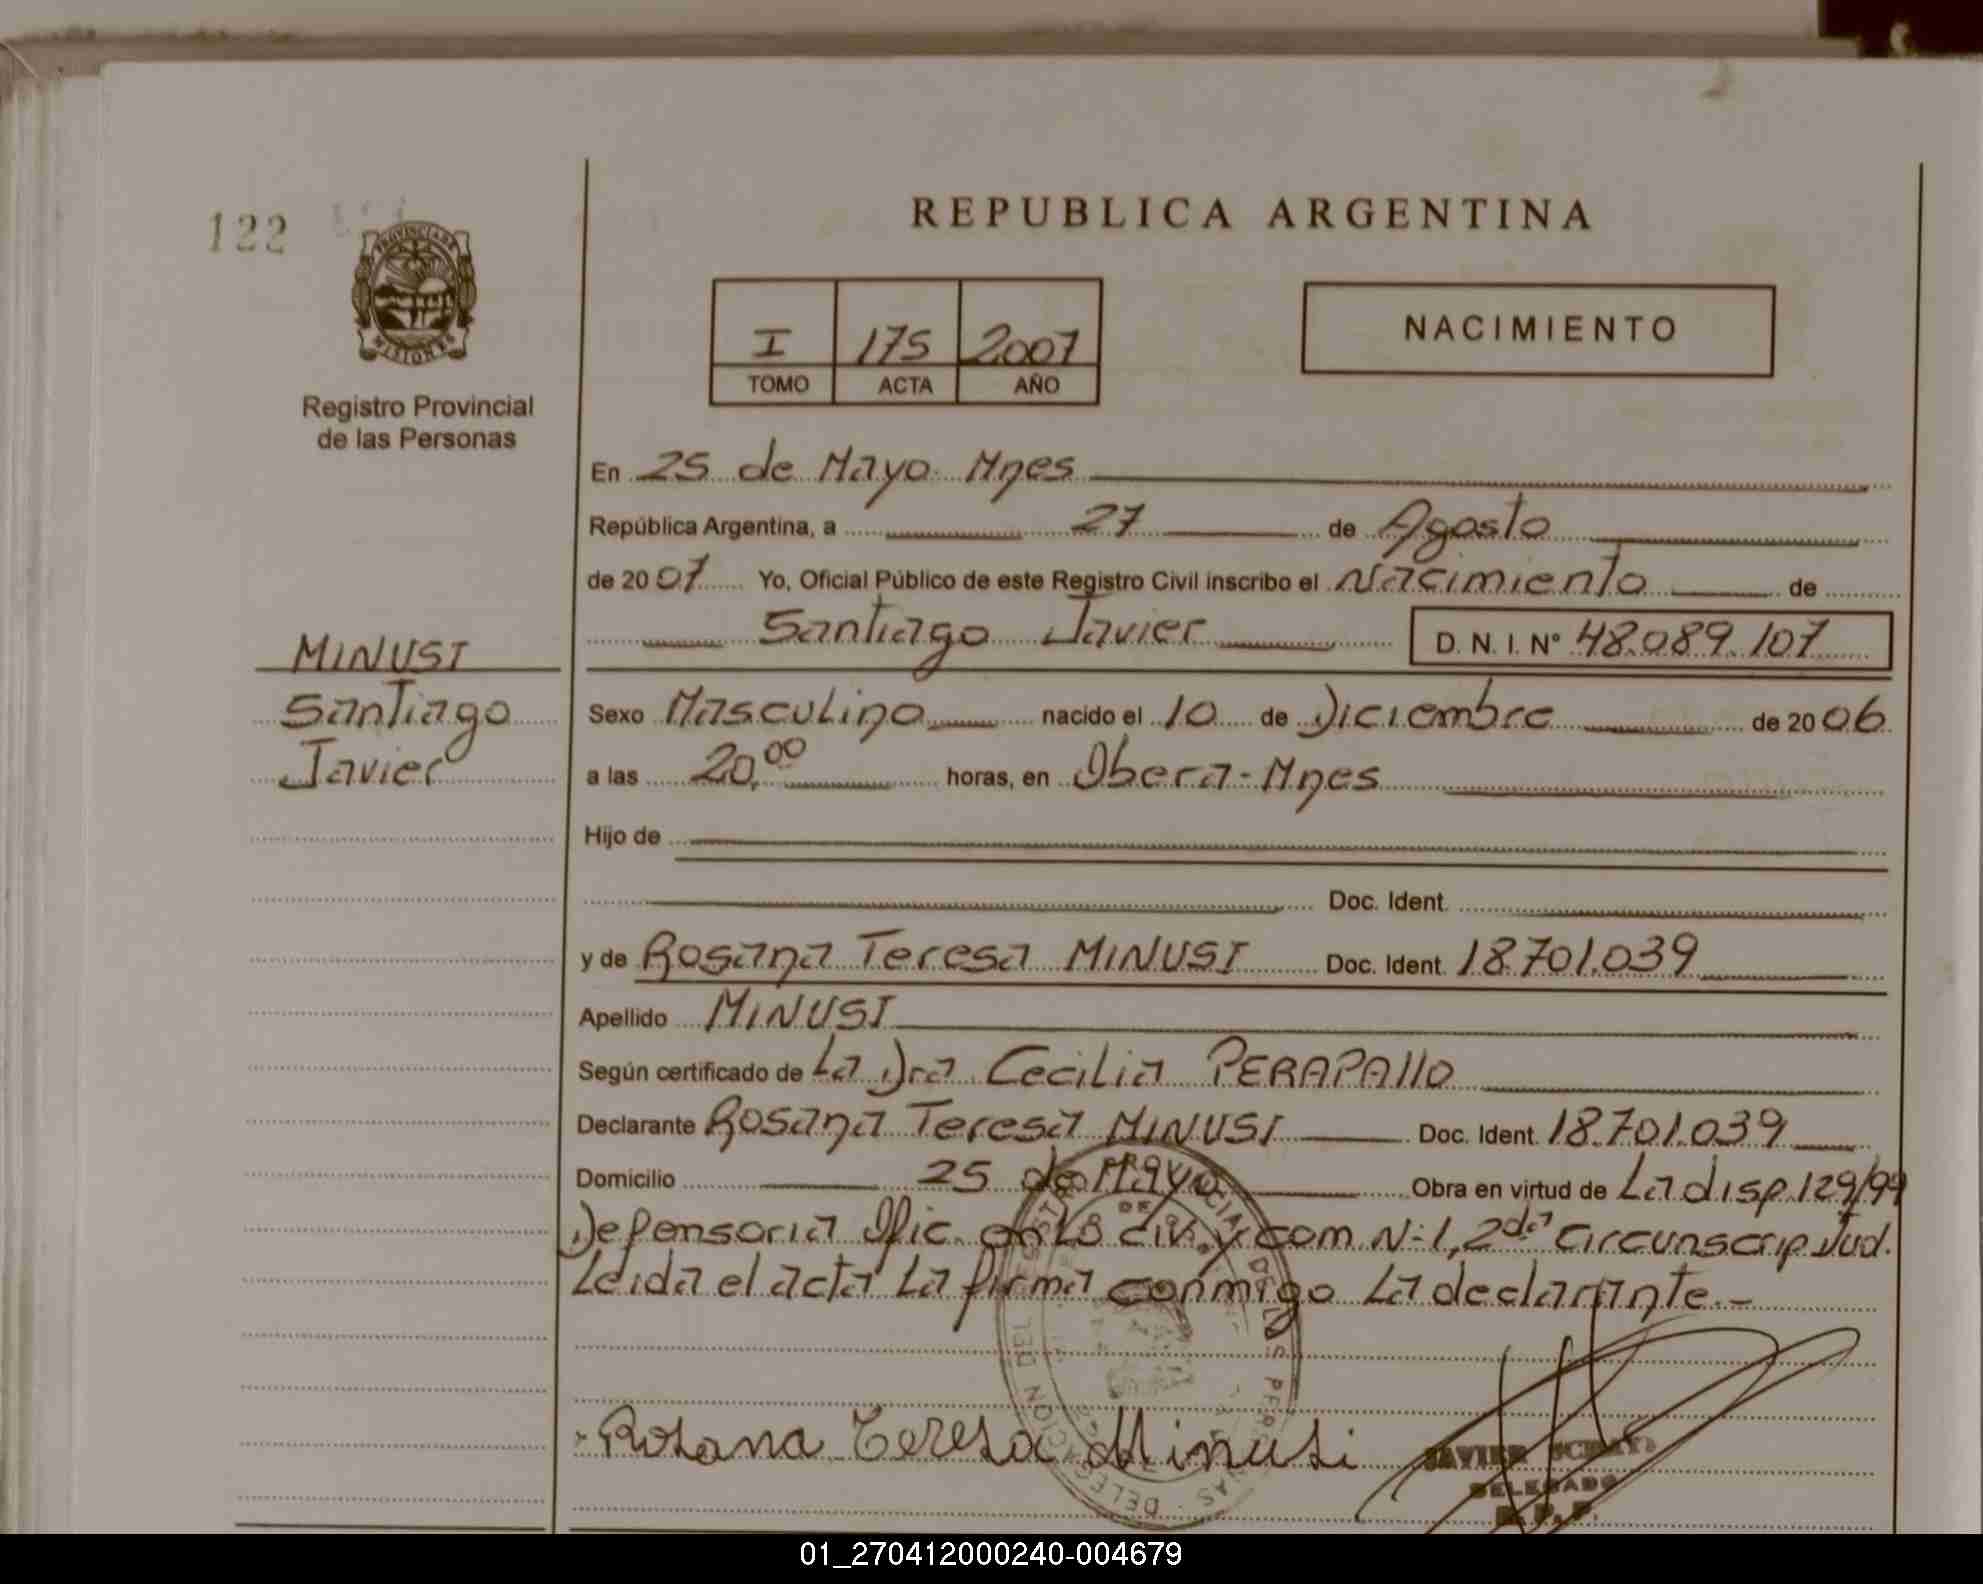 122
PROVINCIA DE
MISIONES
Registro Provincial
de las Personas
REPUBLICA ARGENTINA
I 175 2007
TOMO ACTA AÑO
NACIMIENTO
En 25 de Mayo Mnes
República Argentina, a 27 de Agosto
de 2007 Yo, Oficial Público de este Registro Civil inscribo el Nacimiento de
Santiago Javier D. N. I. Nº 48.089.107
MINUSI
Santiago
Javier
Sexo Masculino nacido el 10 de Diciembre de 2006
a las 20,00 horas, en Obera-Mnes
Hijo de
Doc. Ident.
y de Rosana Teresa MINUSI Doc. Ident. 18.701.039
Apellido MINUSI
Según certificado de La Dra Cecilia PERAPAllO
Declarante Rosana Teresa MINUSI Doc. Ident. 18.701.039
Domicilio 25 de Mayo Obra en virtud de La disp. 129/99
Defensoria Ofic. en Lo civ. y com N:1, 2da Circunscrip Jud.
Leida el acta La firma conmigo La declarante.-
Rosana Teresa Minusi
JAVIER
DELEGADO
R.P.P.
01_270412000240-004679